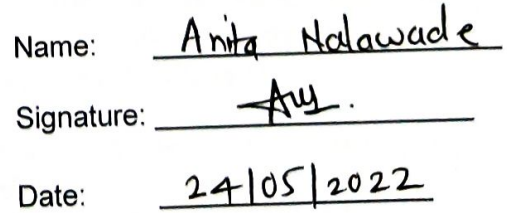 Name: Anita Nalawade
Signature:
Date: 24/05/2022